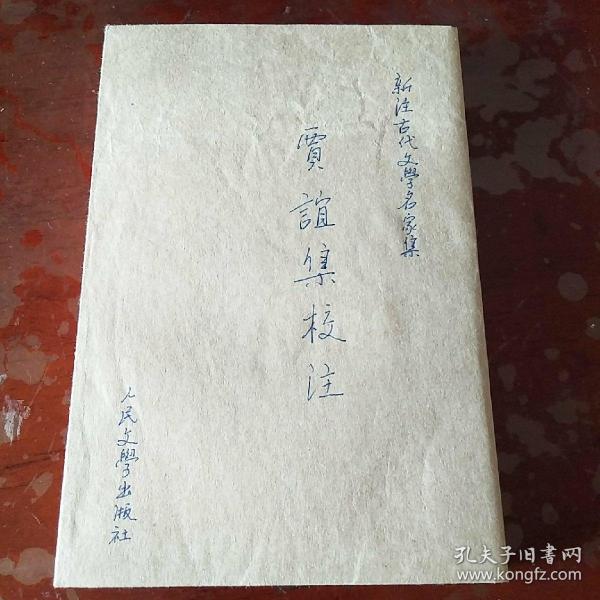 新注古代文學名家集
賈誼集校注
人民文學出版社
孔夫子旧書网
www.kongfz.com